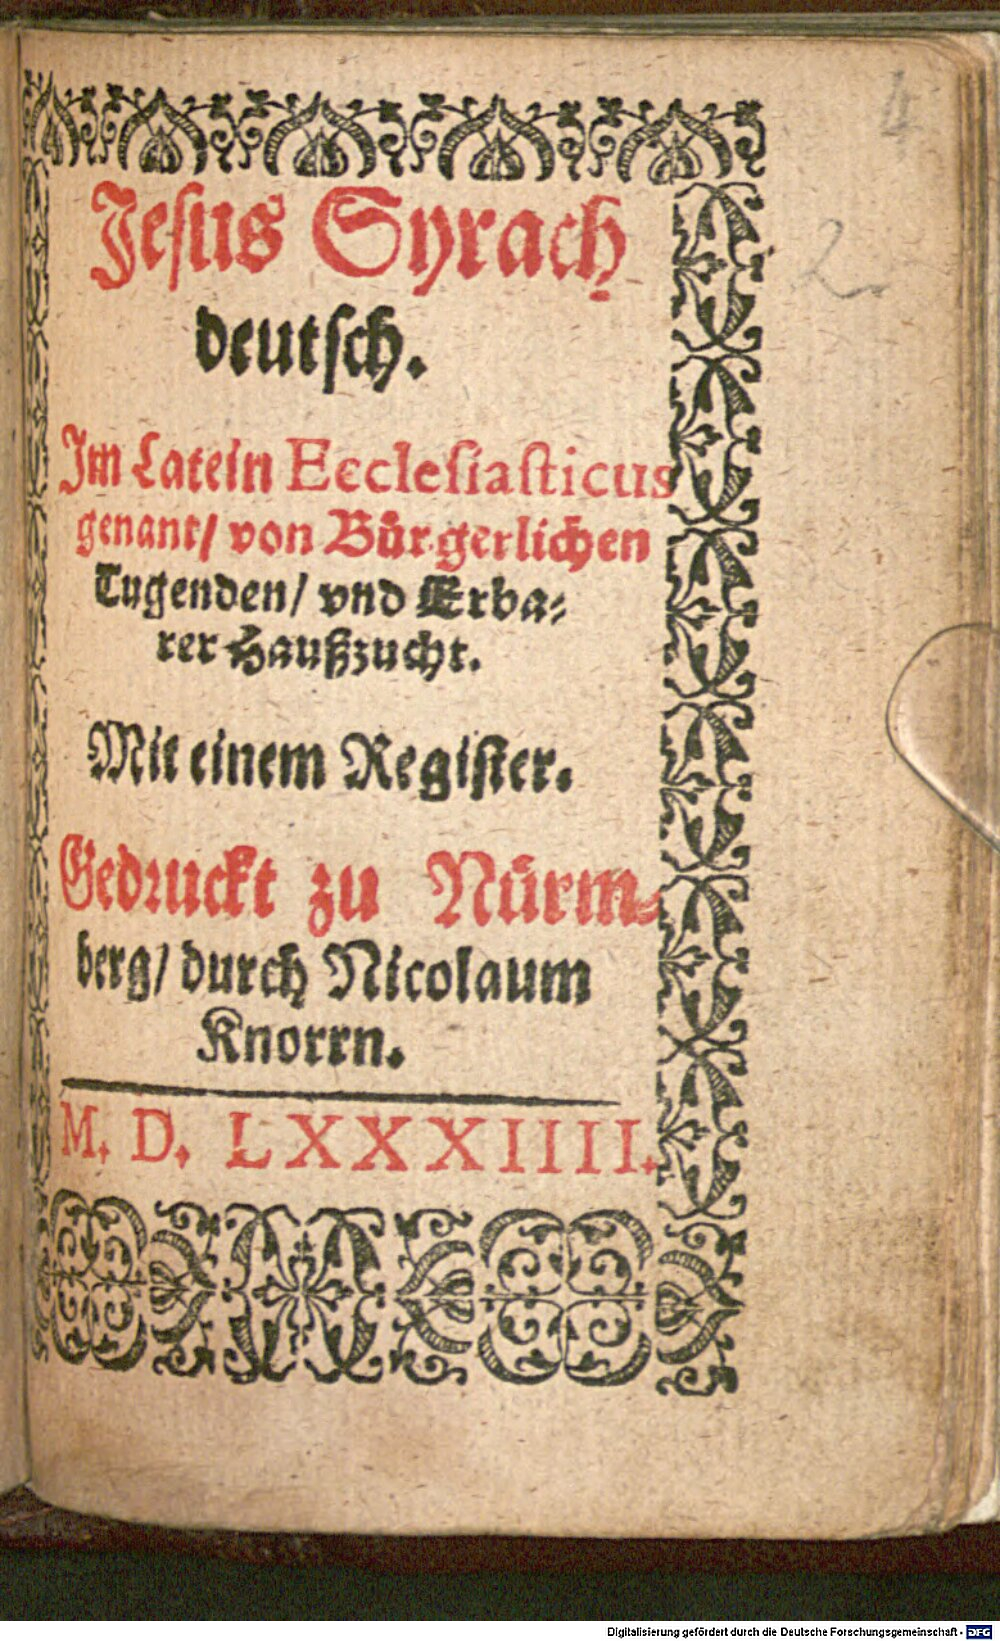 4
2
Jesus Syrach
deutsch.
Im Latein Ecclesiasticus
genant/ von Bürgerlichen
Tugenden/ vnd Erba-
rer Haußzucht.
Mit einem Register.
Gedruckt zu Nürm-
berg/ durch Nicolaum
Knorrn.
M. D. LXXXIIII.
Digitalisierung gefördert durch die Deutsche Forschungsgemeinschaft - DFG